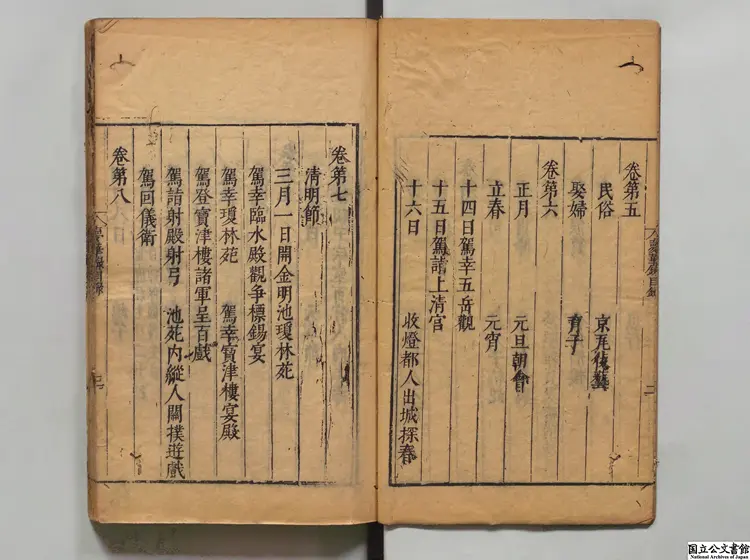 卷第五
民俗 京瓦伎藝
娶婦 育子
卷第六
正月 元旦朝會
立春 元宵
十四日駕幸五岳觀
十五日駕詣上清宮
十六日 收燈都人出城探春
卷第七
清明節
三月一日開金明池瓊林苑
駕幸臨水殿觀爭標錫宴
駕幸瓊林苑 駕幸寶津樓宴殿
駕登寶津樓諸軍呈百戲
駕詣射殿射弓 池苑内縱人關撲遊戲
駕回儀衛
卷第八
国立公文書館
National Archives of Japan